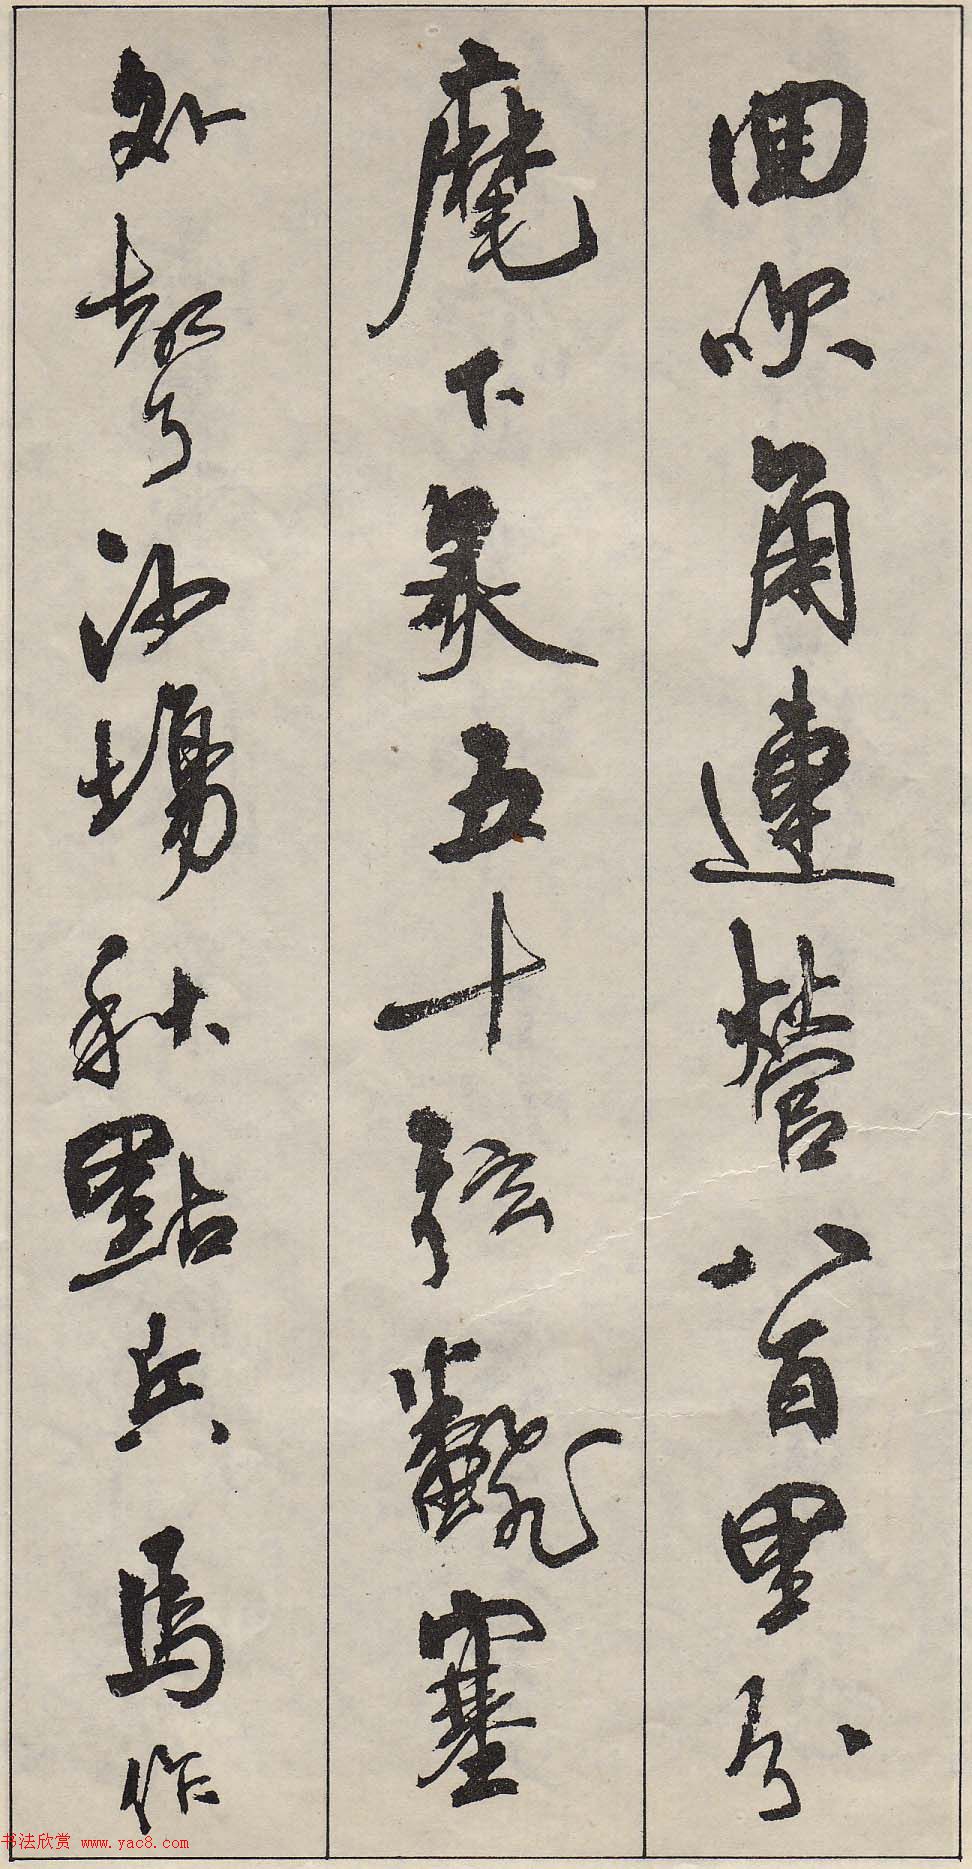 回吹角連營八百里分
麾下炙五十弦飜塞
外聲沙場秋點兵馬作
书法欣赏 www.yac8.com